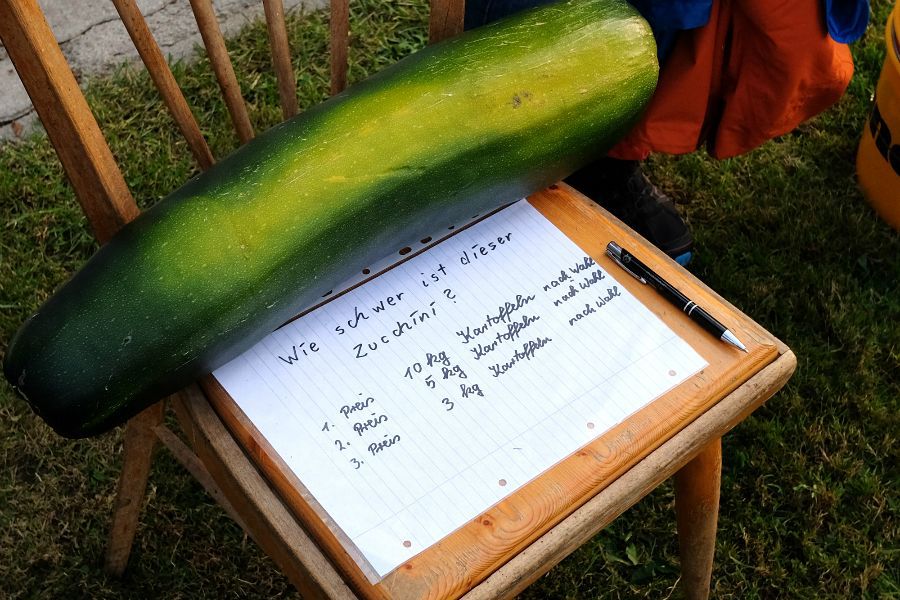 Wie schwer ist dieser
Zucchini?
1. Preis 10 kg Kartoffeln nach Wahl
2. Preis 5 kg Kartoffeln nach Wahl
3. Preis 3 kg Kartoffeln nach Wahl